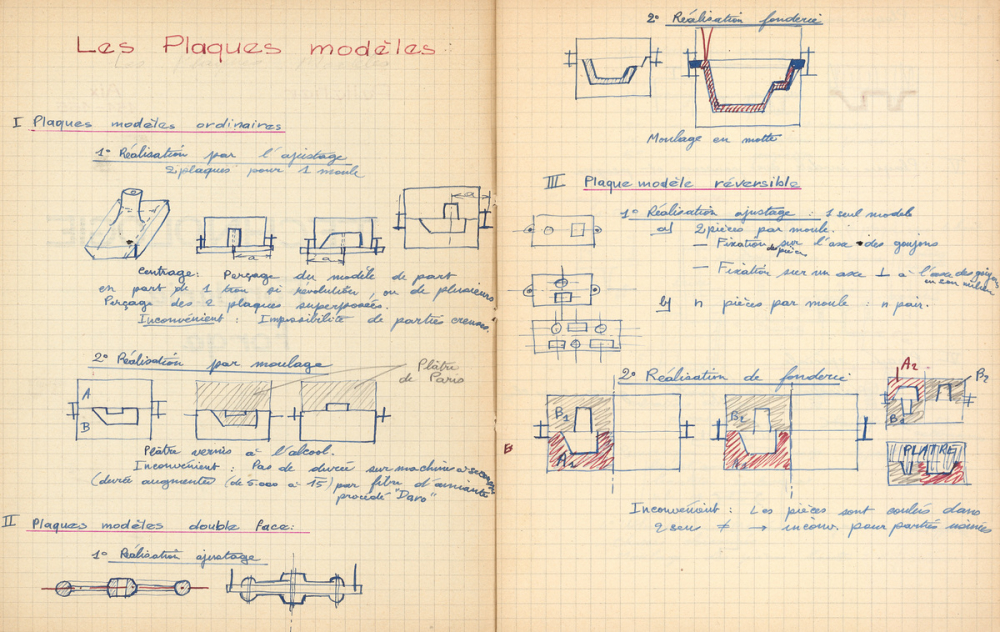 Les Plaques modèles:
I Plaques modèles ordinaires
1° Réalisation par l'ajustage
2 plaques pour 1 moule
a
a
a
Centrage: Perçage du modèle de part
en part de 1 trou si révolution, ou de plusieurs
Perçage des 2 plaques superposées.
Inconvénient : Impossibilité de parties creuses.
2° Réalisation par moulage
Plâtre
de Paris
A
B
Plâtre vernis à l'alcool.
Inconvénient : Pas de durée sur machine à
(durée augmentée (de 5.000 à 15) par fibre d'amiante
procédé "Daro"
II Plaques modèles double face:
1° Réalisation ajustage
2° Réalisation fonderie
Moulage en motte
III Plaque modèle réversible
1° Réalisation ajustage : 1 seul modèle
a) 2 pièces par moule.
— Fixation sur l'axe des goujons
— Fixation sur un axe ⊥ à l'axe des goujons
en son milieu
b) n pièces par moule : n pair.
2° Réalisation de fonderie
B1
A1
B2
A2
B2
PLATRE
Inconvénient : Les pièces sont coulées dans
2 sens ≠ → inconv. pour parties